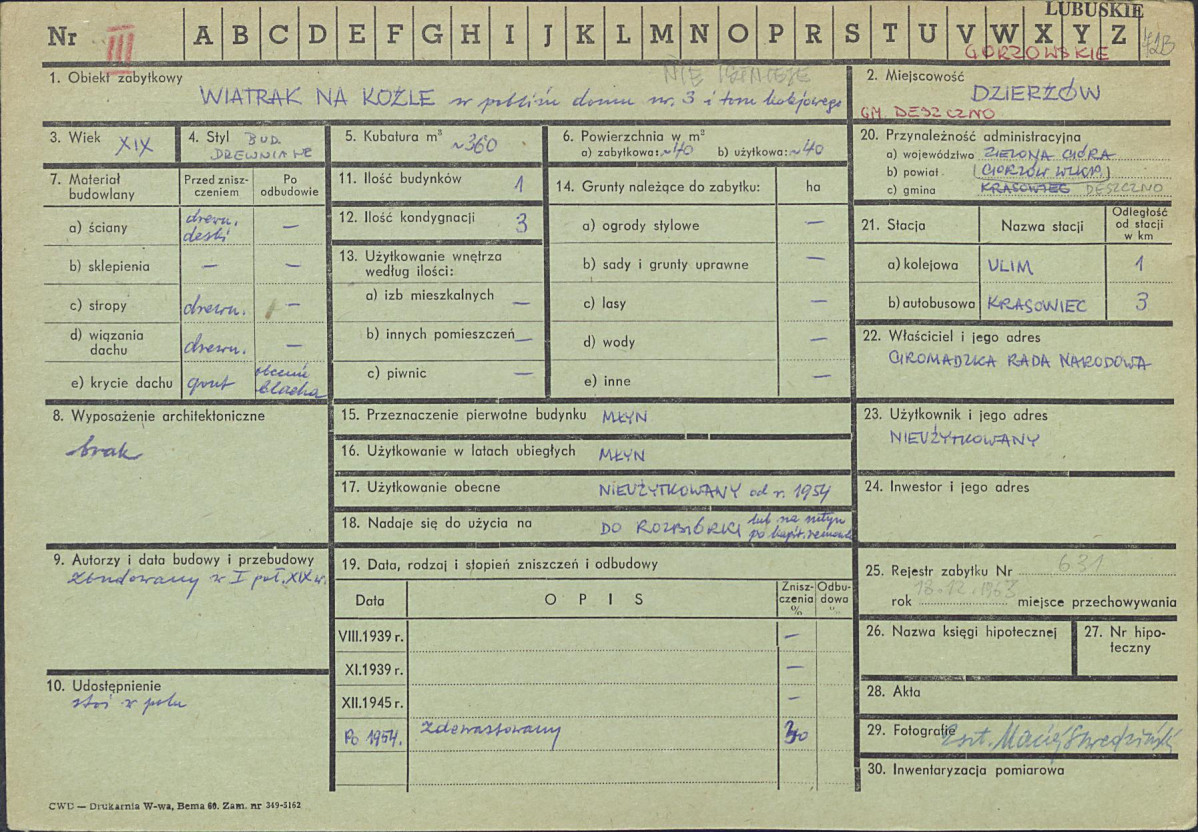 LUBUSKIE
Nr III A B C D E F G H I J K L M N O P R S T U V W X Y Z
GORZOWSKIE
NIE ISTNIEJE
1. Obiekt zabytkowy
WIATRAK NA KOŹLE w pobliżu domu nr. 3 i toru kolejowego
2. Miejscowość
DZIERŻÓW
GM. DESZCZNO
3. Wiek XIX
4. Styl BUD.
DREWNIANE
5. Kubatura m³
~360
6. Powierzchnia w m²
a) zabytkowa: ~40 b) użytkowa: ~40
20. Przynależność administracyjna
a) województwo ZIELONA GÓRA
b) powiat GORZÓW WLKP.
c) gmina KRASOWIEC DESZCZNO
7. Materiał
budowlany
Przed znisz-
czeniem
Po
odbudowie
a) ściany drewn. deski —
b) sklepienia — —
c) stropy drewn. —
d) wiązania
dachu drewn. —
e) krycie dachu gont obecnie blacha
11. Ilość budynków 1
12. Ilość kondygnacji 3
13. Użytkowanie wnętrza
według ilości:
a) izb mieszkalnych —
b) innych pomieszczeń —
c) piwnic —
14. Grunty należące do zabytku: ha
a) ogrody stylowe —
b) sady i grunty uprawne —
c) lasy —
d) wody —
e) inne —
21. Stacja Nazwa stacji
Odległość
od stacji
w km
a) kolejowa ULIM 1
b) autobusowa KRASOWIEC 3
22. Właściciel i jego adres
GROMADZKA RADA NARODOWA
8. Wyposażenie architektoniczne
brak
15. Przeznaczenie pierwotne budynku MŁYN
16. Użytkowanie w latach ubiegłych MŁYN
17. Użytkowanie obecne NIEUŻYTKOWANY od r. 1954
18. Nadaje się do użycia na DO ROZBIÓRKI lub na młyn
po kapit. remoncie
23. Użytkownik i jego adres
NIEUŻYTKOWANY
24. Inwestor i jego adres
9. Autorzy i data budowy i przebudowy
zbudowany w I poł. XIX w.
19. Data, rodzaj i stopień zniszczeń i odbudowy
Data OPIS
Znisz-
czenia
%
Odbu-
dowa
%
VIII.1939 r. —
XI.1939 r. —
XII.1945 r. —
Po 1954. Zdewastowany 30
25. Rejestr zabytku Nr 631
rok 18.12.1963 miejsce przechowywania
26. Nazwa księgi hipotecznej
27. Nr hipo-
teczny
10. Udostępnienie
stoi w polu
28. Akta
29. Fotografie
30. Inwentaryzacja pomiarowa
CWD — Drukarnia W-wa, Bema 60. Zam. nr 349-5162